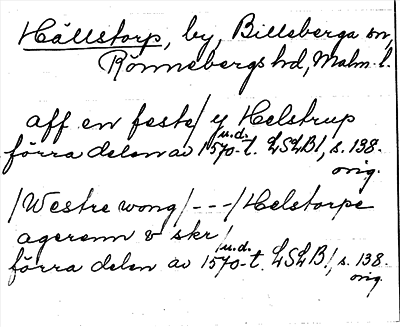 Hällstorp, by, Billeberga sn,
Rönnebergs hd, Malm. l.
aff en feste/ y Helstrup
u.d.
förra delen av 1570-t. LSLB1, s. 138.
orig.
/Westre wong/ - - -/Helstorpe
agerenn v skr/
u.d.
förra delen av 1570-t. LSLB1, s. 138.
orig.